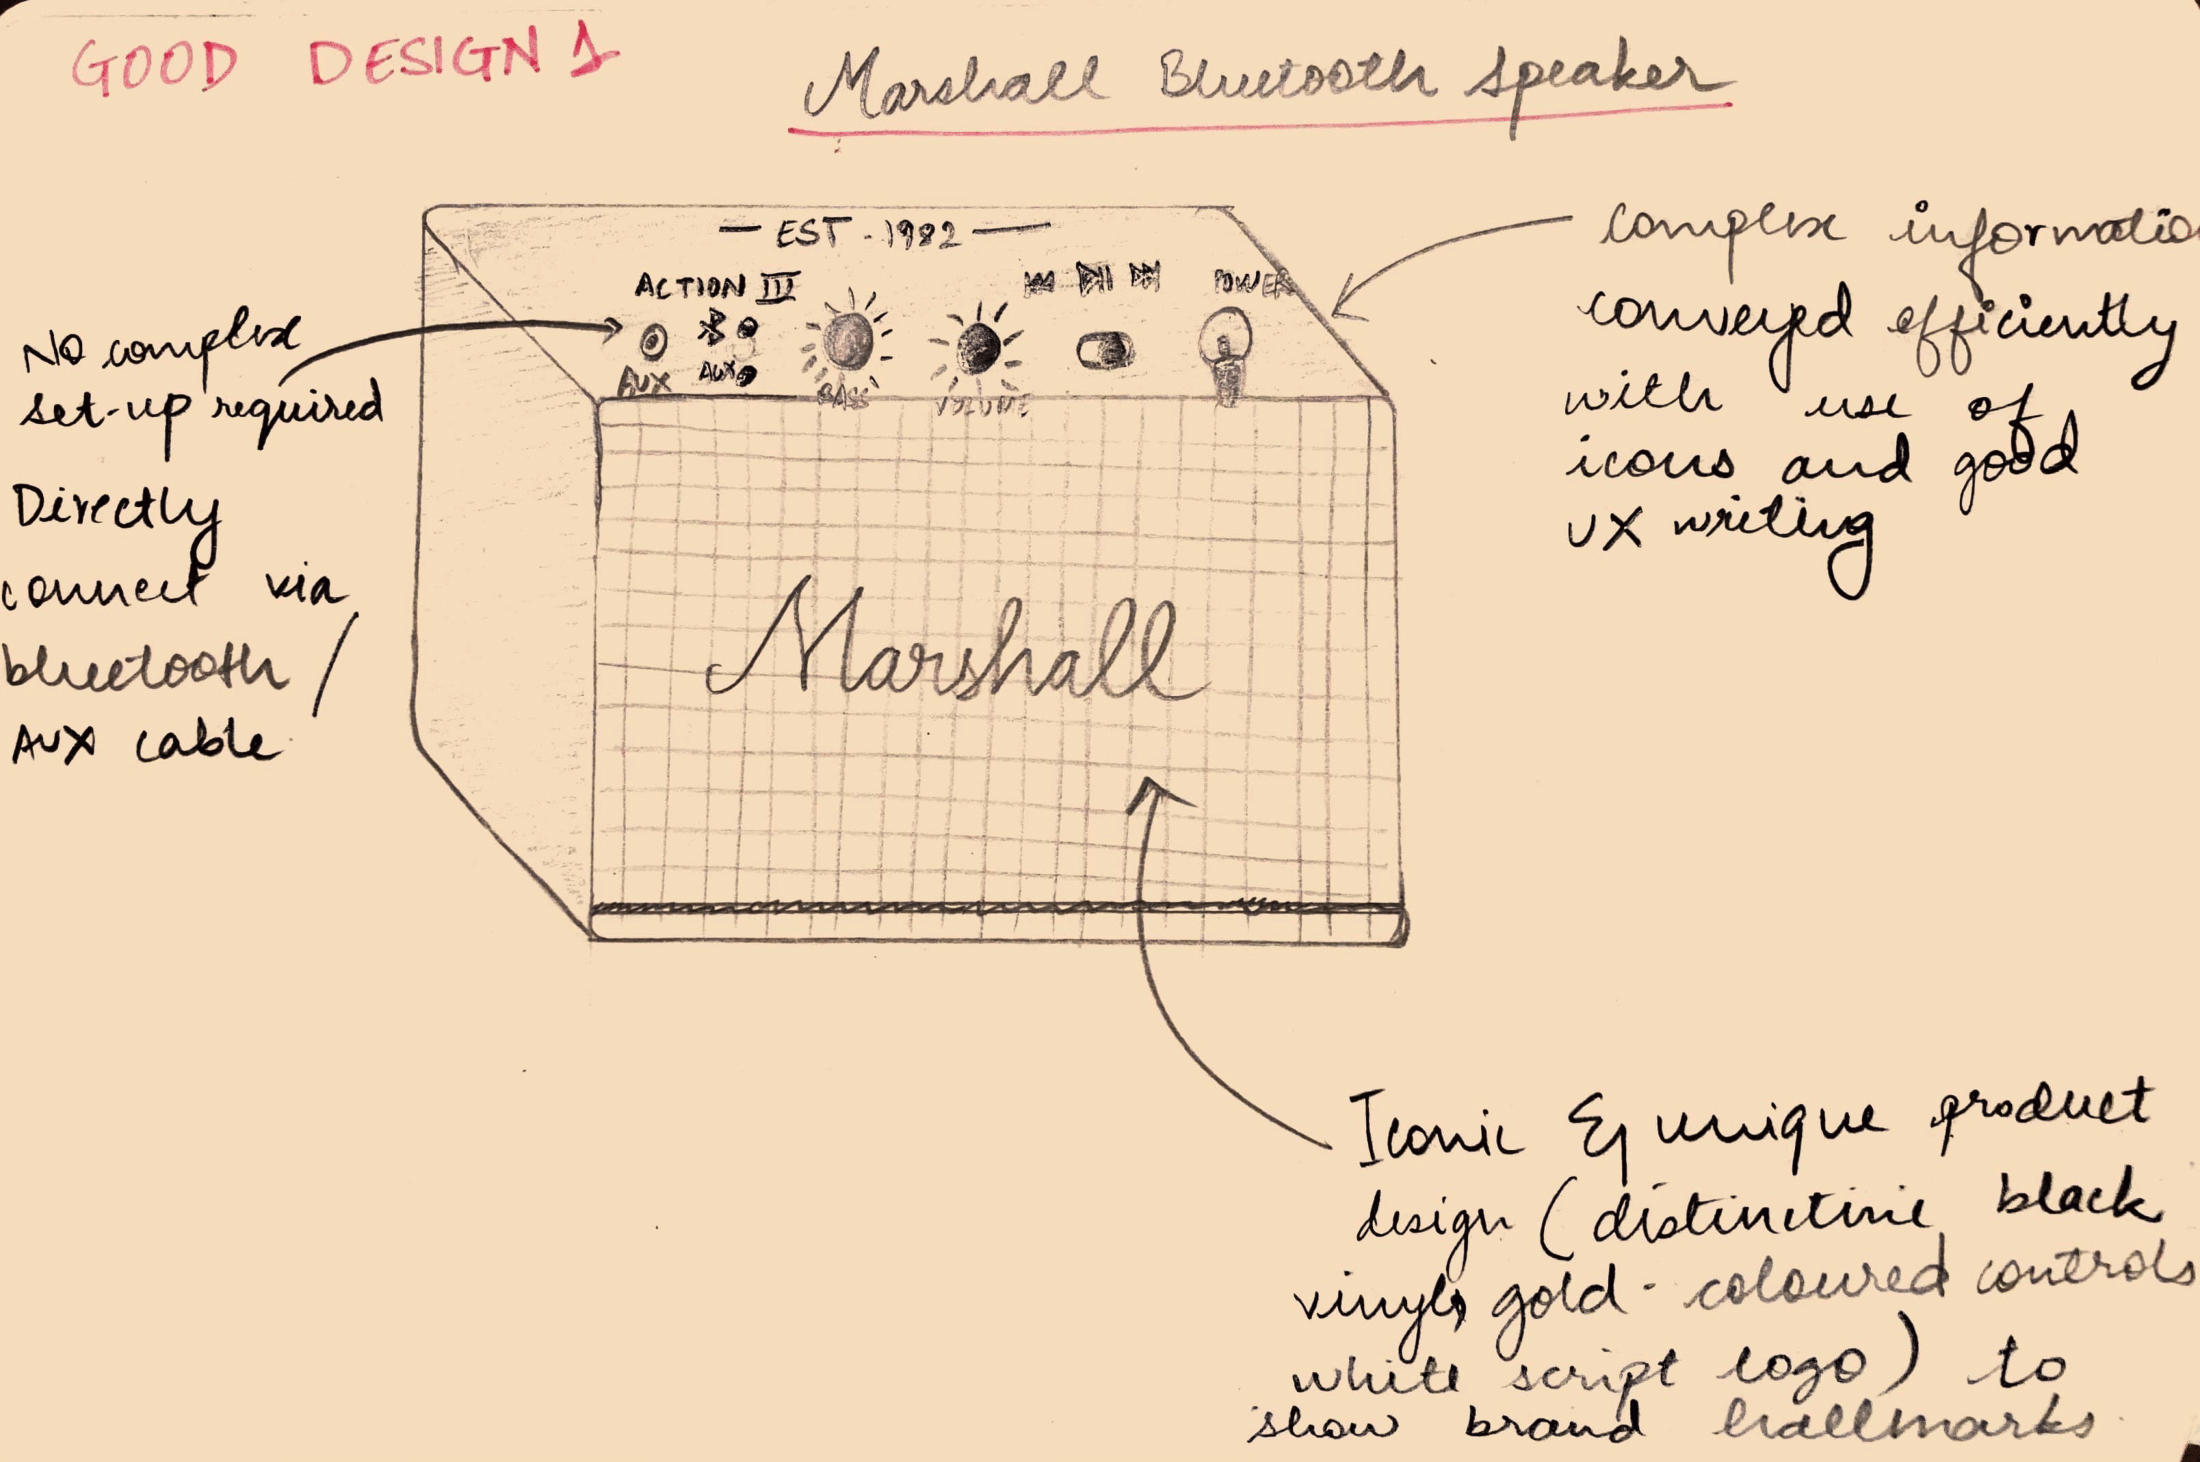 GOOD DESIGN 1
Marshall Bluetooth speaker
— EST - 1982 —
ACTION III
POWER
AUX
AUX
BASS
VOLUME
Marshall
No complex
set-up required
Directly
connect via
bluetooth /
AUX cable
complex informatio
conveyed efficiently
with use of
icons and good
UX writing
Iconic & unique product
design (distinctive black
vinyl, gold-coloured controls
white script logo) to
show brand hallmarks